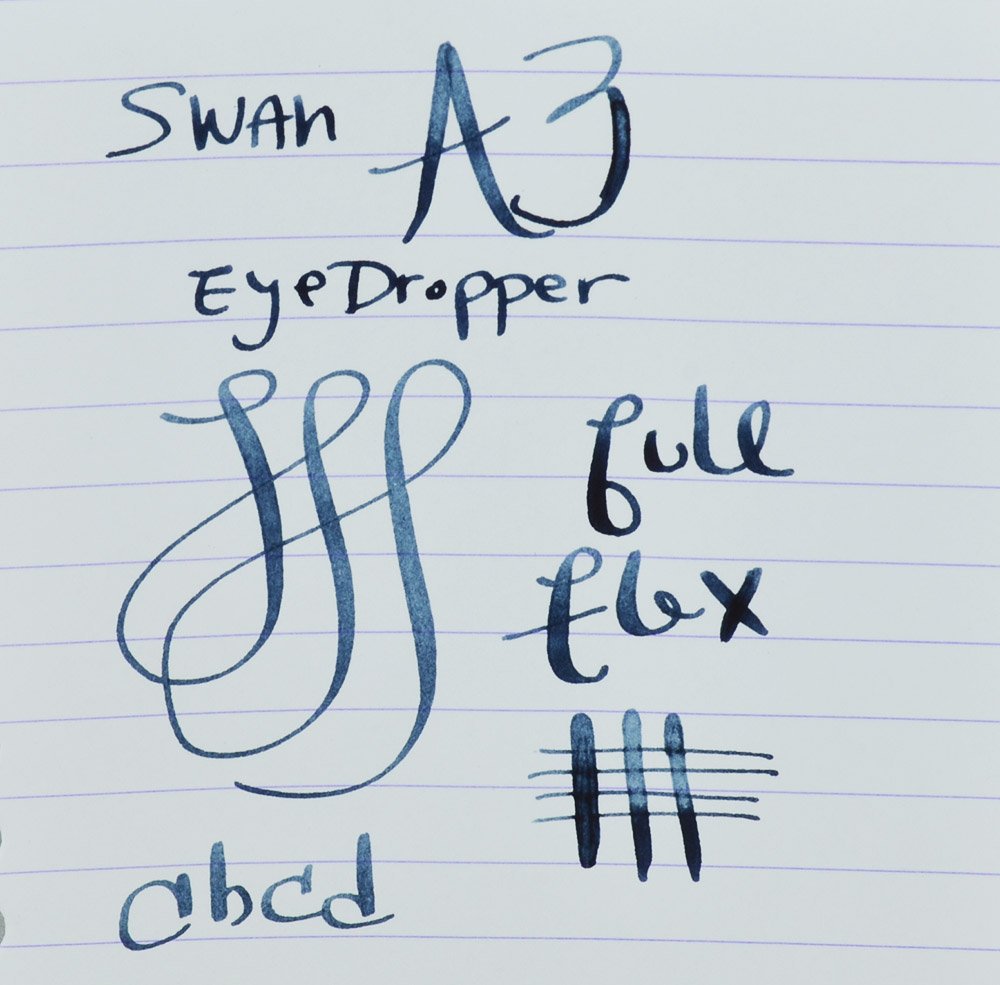 SWAN A3
EyeDropper
full
flex
abcd